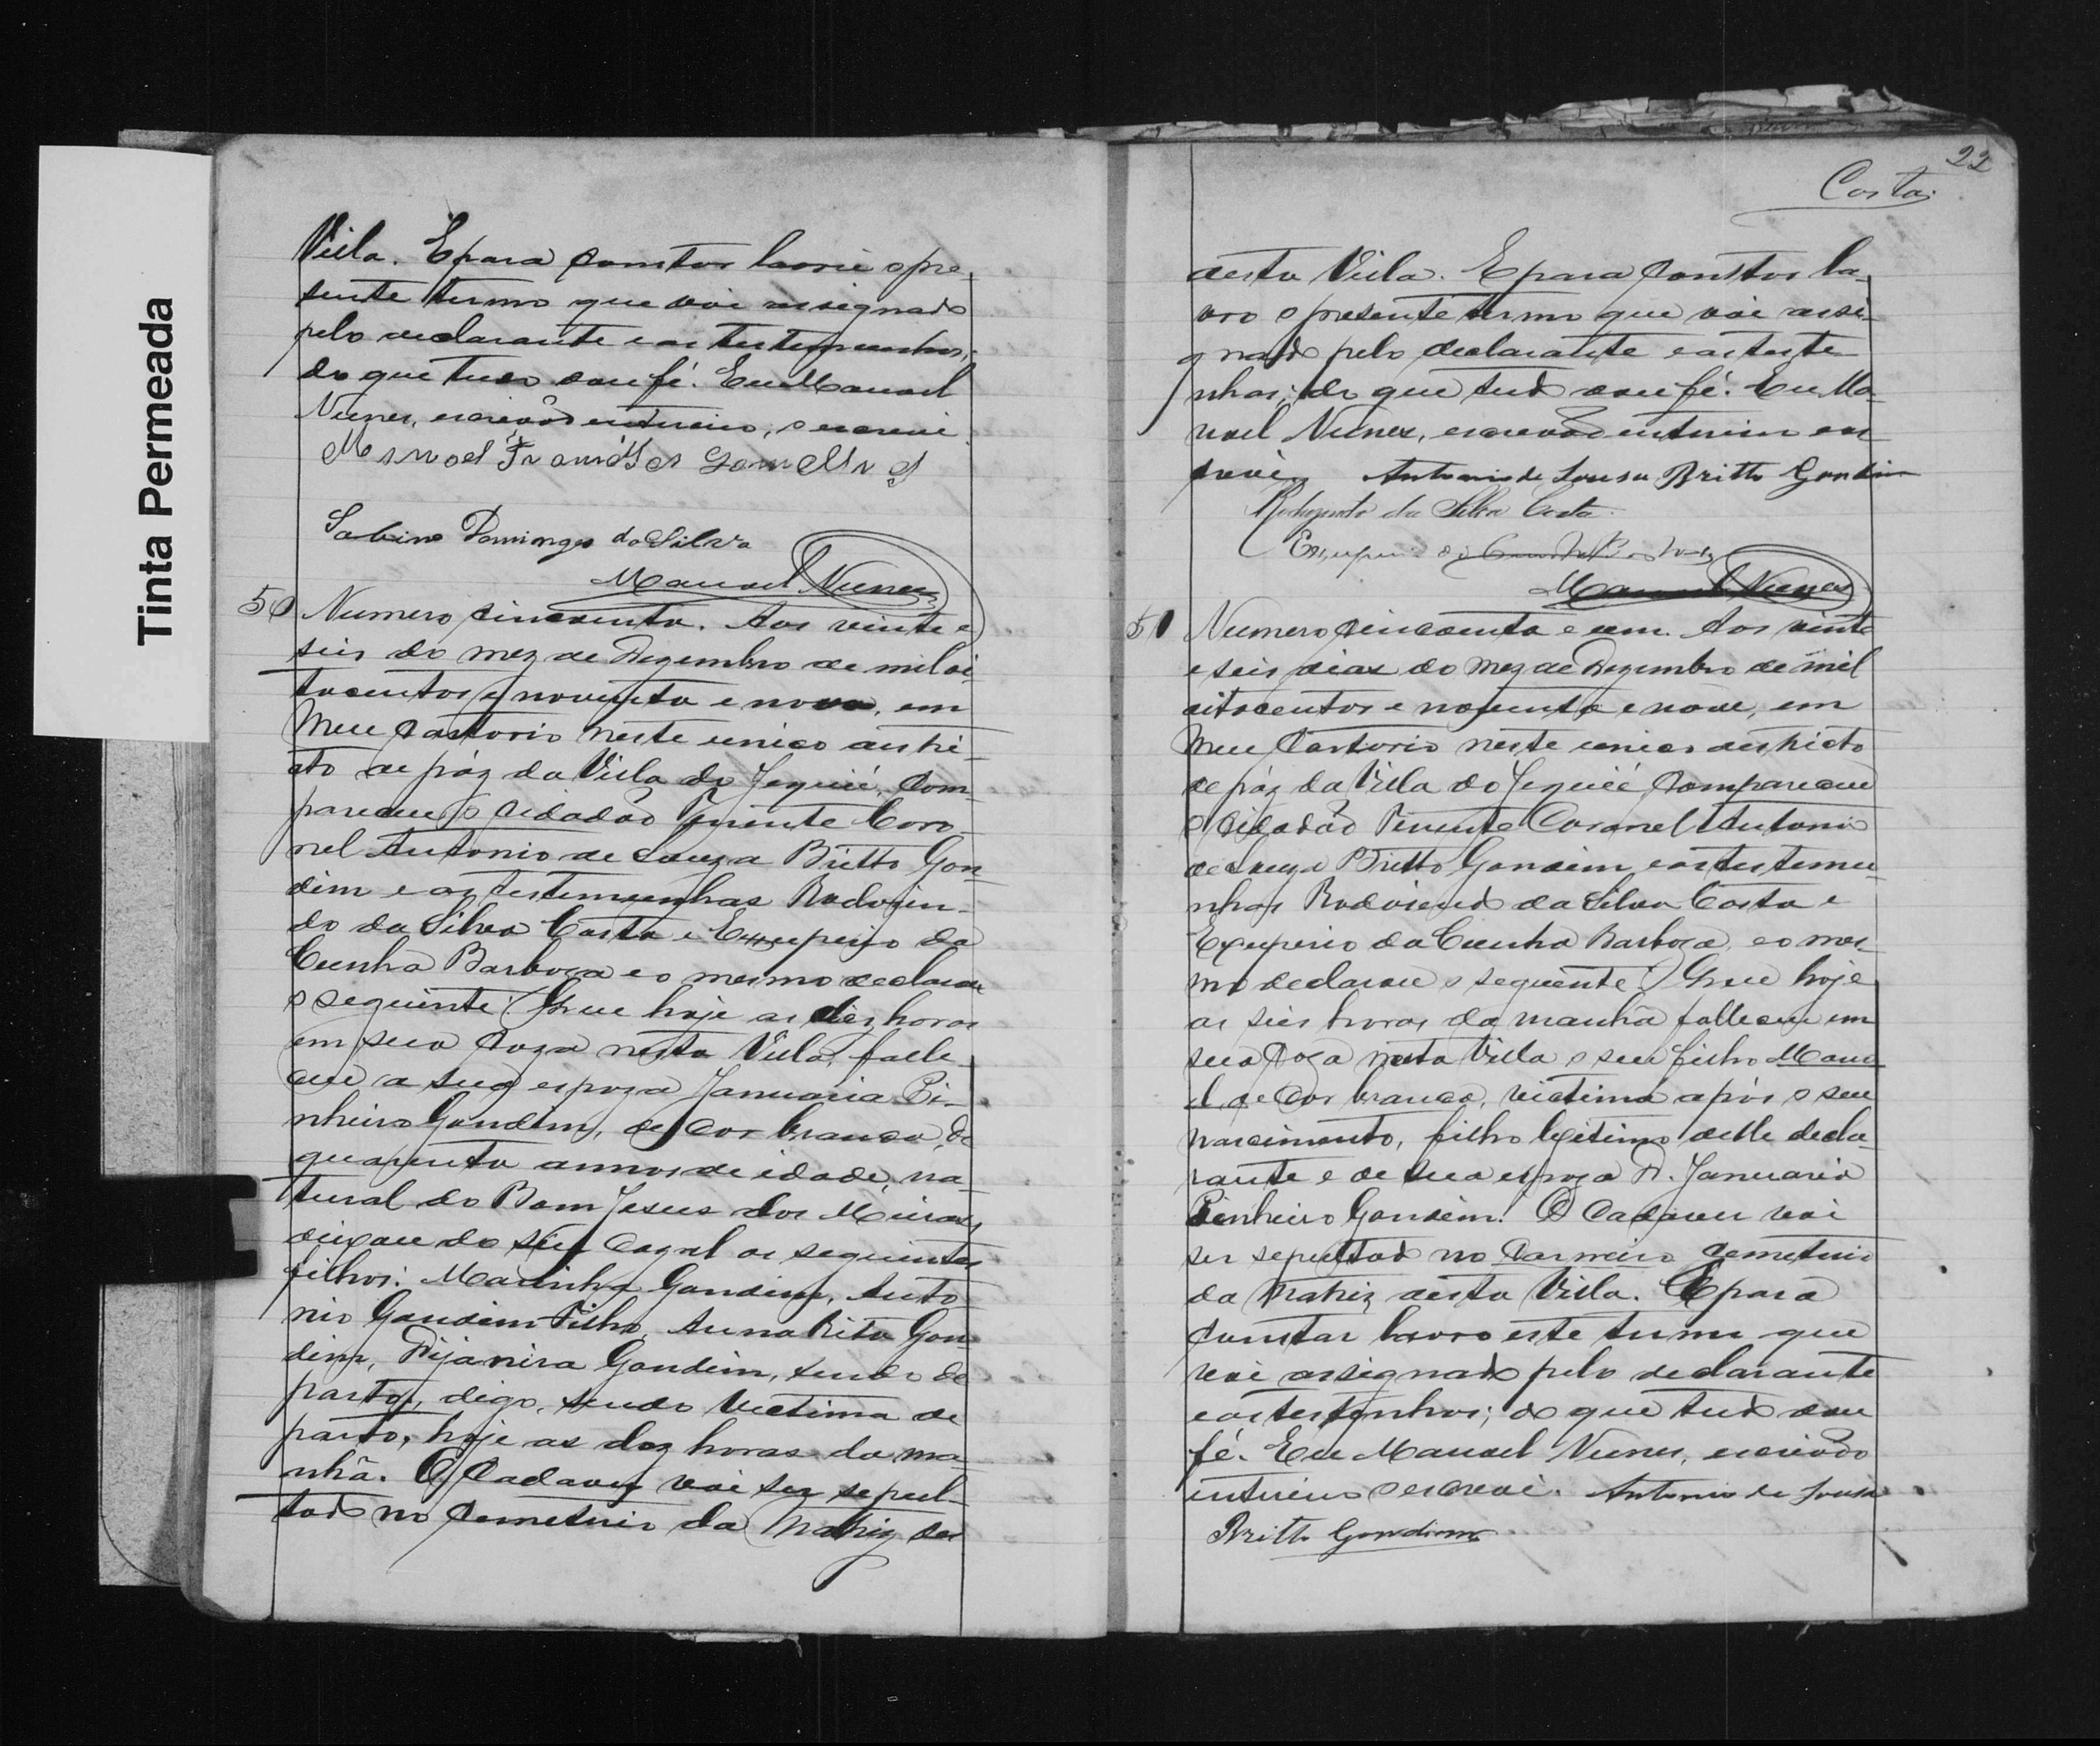 Tinta Permeada
Villa. E para constar lavrei o pre-
sente termo que vai assignado
pelo declarante e as testemunhas,
do que tudo dou fé. Eu Manoel
Nunes, escrivão interino, o escrevi.
Manoel
Sabino Domingos da Silva
Manoel Nunes
50 Numero cincoenta. Aos vinte e
seis do mez de Dezembro de mil oi-
tocentos e noventa e nove, em
meu cartorio neste unico distri-
cto de páz da Villa do Jequié, com-
pareceu o cidadão Tenente Coro-
nel Antonio de Souza Britto Gon-
dim e as testemunhas Rodozin-
do da Silva Costa e Exuperio da
Cunha Barboza e o mesmo declarou
o seguinte: Que hoje as dez horas
em sua caza nesta Villa, falle-
ceu a sua espoza Januaria Pi-
nheiro Gondim, de cor branca, de
quarenta annos de idade, na-
tural do Bom Jesus dos Meiras,
deixou do seu cazal os seguintes
filhos: Marinha Gondim, Anto-
nio Gondim Filho, Anna Rita Gon-
dim, Dijanira Gondim, sendo de
parto, digo, sendo victima de
parto, hoje as dez horas da ma-
nhã. O cadaver vai ser sepul-
tado no cemeterio da Matriz des
22
Costa
desta Villa. E para constar la-
vro o presente termo que vai assi-
gnado pelo declarante e as teste-
nhas; do que tudo dou fé. Eu Ma-
noel Nunes, escrivão interino es-
crevi. Antonio de Sousa Britto Gondim
Rodozindo da Silva Costa
Exuperio da Cunha Barboza
Manoel Nunes
51 Numero cincoenta e um. Aos vinte
e seis dias do mez de Dezembro de mil
oitocentos e noventa e nove, em
meu Cartorio neste unico districto
de páz da Villa do Jequié compareceu
o cidadão Tenente Coronel Antonio
de Souza Britto Gondim e as testemu-
nhas Rodozindo da Silva Costa e
Exuperio da Cunha Barboza, e o mes-
mo declarou o seguinte: Que hoje
as seis horas da manhã falleceu em
sua caza nesta Villa o seu filho Mano-
el, de cor branca, victima após o seu
nascimento, filho legitimo delle decla-
rante e de sua espoza D. Januaria
Pinheiro Gondim. O cadaver vai
ser sepultado no carneiro cemeterio
da Matriz desta Villa. E para
constar lavro este termo que
vai assignado pelo declarante
e as testenhas; do que tudo dou
fé. Eu Manoel Nunes, escrivão
interino o escrevi. Antonio de Sousa
Britto Gondim